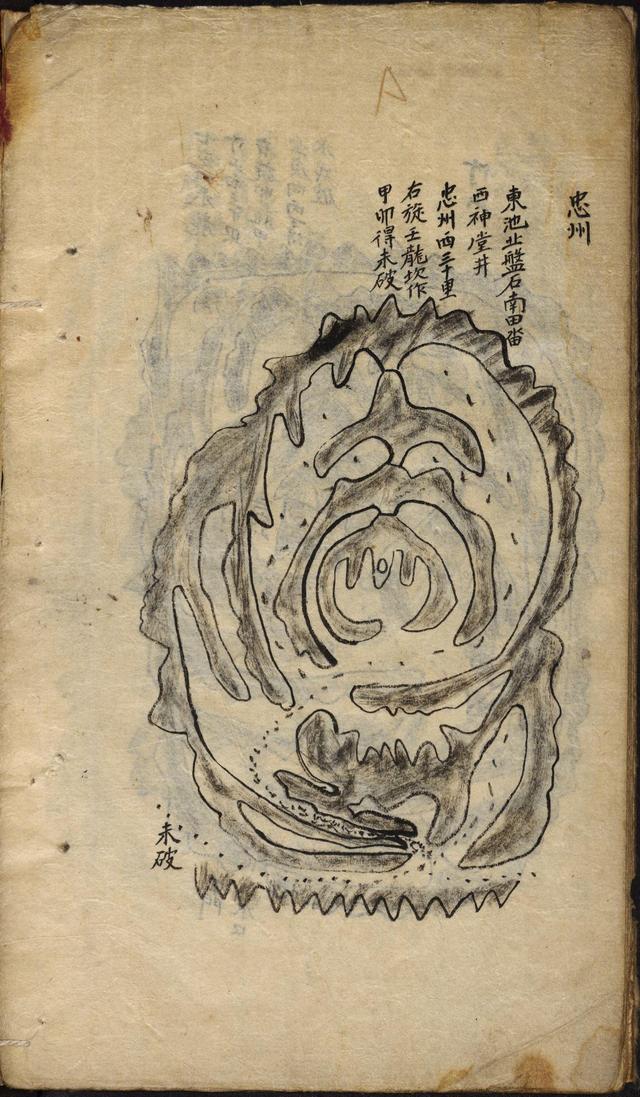 忠州
東池北盤石南田畓
西神堂井
忠州西三十里
右旋壬龍坎作
甲卯得未破
未破
A